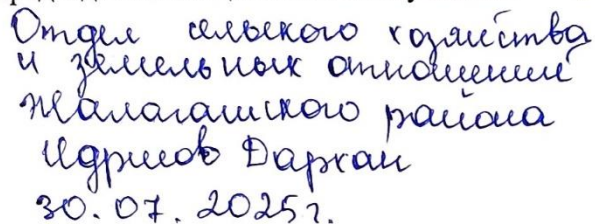 Отдел сельского хозяйства
и земельных отношений
Жалагашского района
Идрисов Дархан
30.07.2025г.